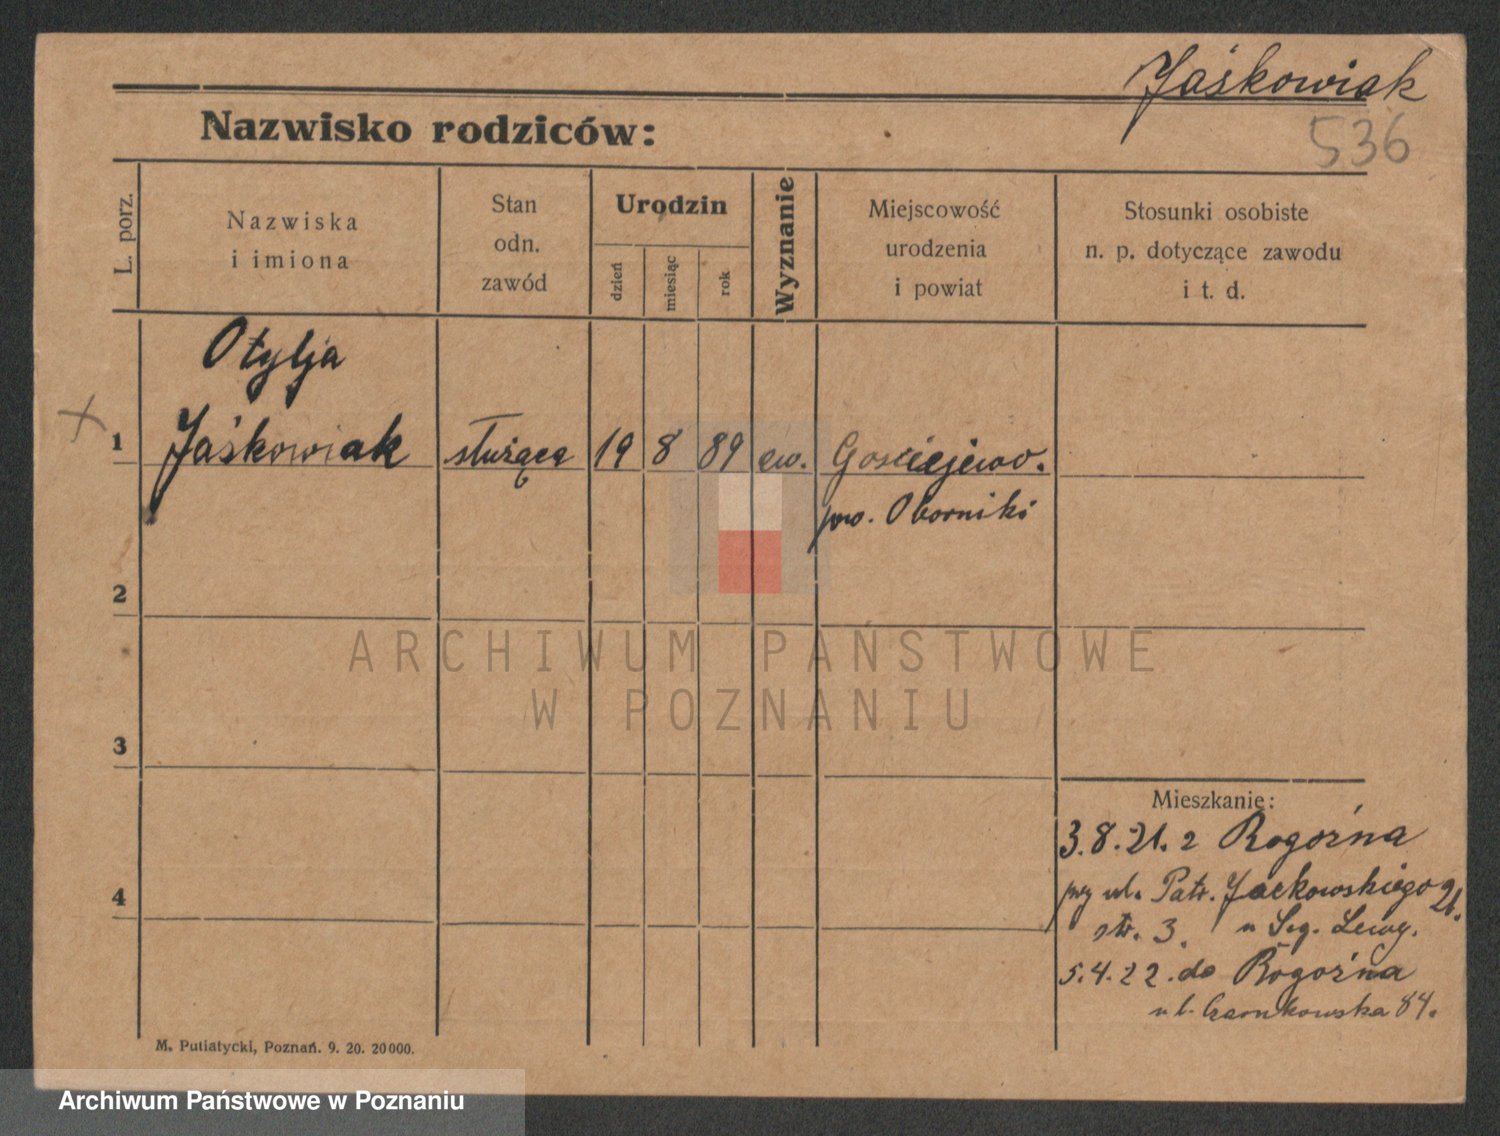 Jaśkowiak
Nazwisko rodziców:
536
L. porz.
Nazwiska
i imiona
Stan
odn.
zawód
Urodzin
dzień
miesiąc
rok
Wyznanie
Miejscowość
urodzenia
i powiat
Stosunki osobiste
n. p. dotyczące zawodu
i t. d.
Otylja
1 Jaśkowiak służąca 19 8 89 ew. Gościejewo.
pow. Oborniki
2
ARCHIWUM PAŃSTWOWE
W POZNANIU
3
Mieszkanie:
3.8.21. z Rogoźna
przy ul. Patr. Jackowskiego 21.
str. 3. u
5.4.22. do Rogoźna
ul. Czarnkowska 84.
4
M. Putiatycki, Poznań. 9. 20. 20000.
Archiwum Państwowe w Poznaniu